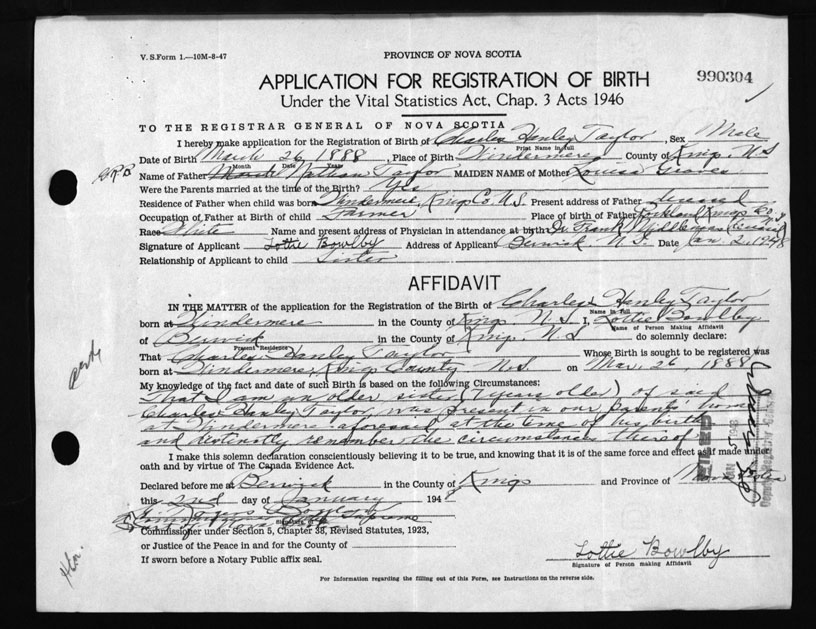 V. S. Form 1.—10M-8-47
PROVINCE OF NOVA SCOTIA
990304
APPLICATION FOR REGISTRATION OF BIRTH
Under the Vital Statistics Act, Chap. 3 Acts 1946
TO THE REGISTRAR GENERAL OF NOVA SCOTIA
I hereby make application for the Registration of Birth of Charles Henley Taylor, Sex Male
Print Name in full
Date of Birth March 26, 1888, Place of Birth Windermere County of Kings, N.S
Month Date Year
Name of Father Nathan Taylor MAIDEN NAME of Mother Louisa Graves
Were the Parents married at the time of the Birth? Yes
Residence of Father when child was born Windermere, Kings Co. N.S. Present address of Father
Occupation of Father at Birth of child Farmer Place of birth of Father Kings Co.
Race White Name and present address of Physician in attendance at birth Dr. Frank Middlemas
Signature of Applicant Lottie Bowlby Address of Applicant Berwick N.S. Date Jan 2, 1948
Relationship of Applicant to child Sister
AFFIDAVIT
IN THE MATTER of the application for the Registration of the Birth of Charles Henley Taylor
Name in Full
born at Windermere in the County of Kings N.S I, Lottie Bowlby
Name of Person Making Affidavit
of Berwick in the County of Kings, N.S do solemnly declare:
Present Residence
That Charles Henley Taylor Whose Birth is sought to be registered was
born at Windermere, Kings County N.S. on Mar. 26, 1888
My knowledge of the fact and date of such Birth is based on the following Circumstances:
That I am an older sister (7 years older) of said
Charles Henley Taylor, was present in our parents home
at Windermere aforesaid at the time of his birth
and distinctly remember the circumstances thereof
I make this solemn declaration conscientiously believing it to be true, and knowing that it is of the same force and effect as if made under
oath and by virtue of The Canada Evidence Act.
Declared before me at Berwick in the County of Kings and Province of Nova Scotia
this 2nd day of January 1948
Supreme
Commissioner under Section 5, Chapter 38, Revised Statutes, 1923,
or Justice of the Peace in and for the County of
If sworn before a Notary Public affix seal.
Lottie Bowlby
Signature of Person making Affidavit
For Information regarding the filling out of this Form, see Instructions on the reverse side.
FILED